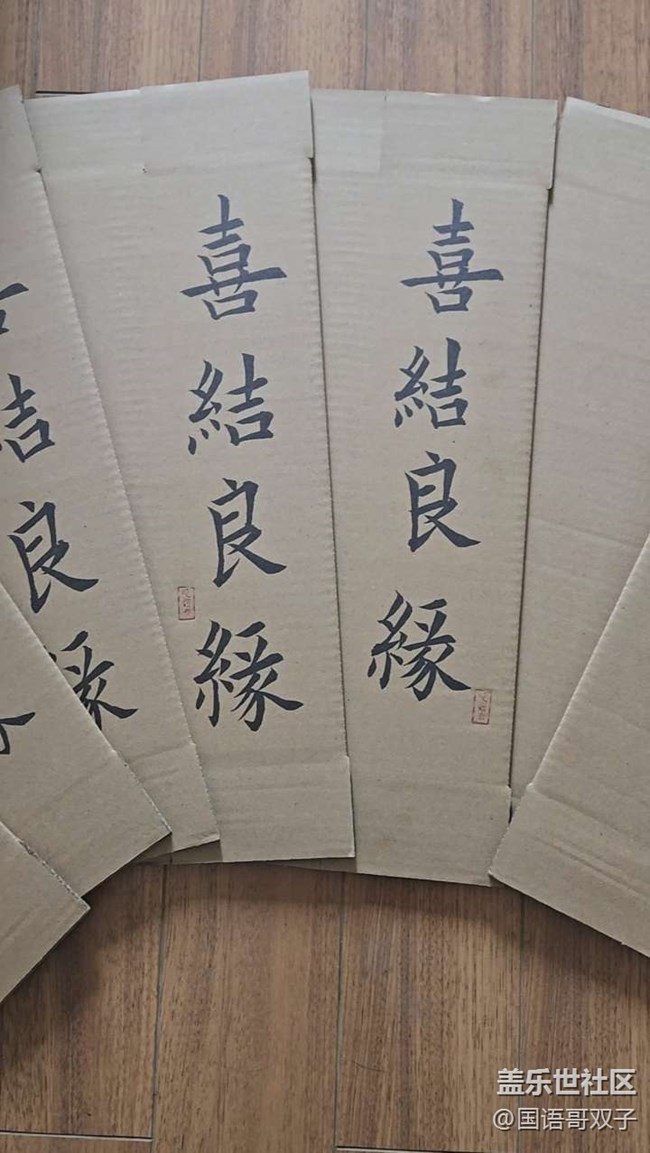 喜結良緣
喜結良緣
結良緣
盖乐世社区
@国语哥双子